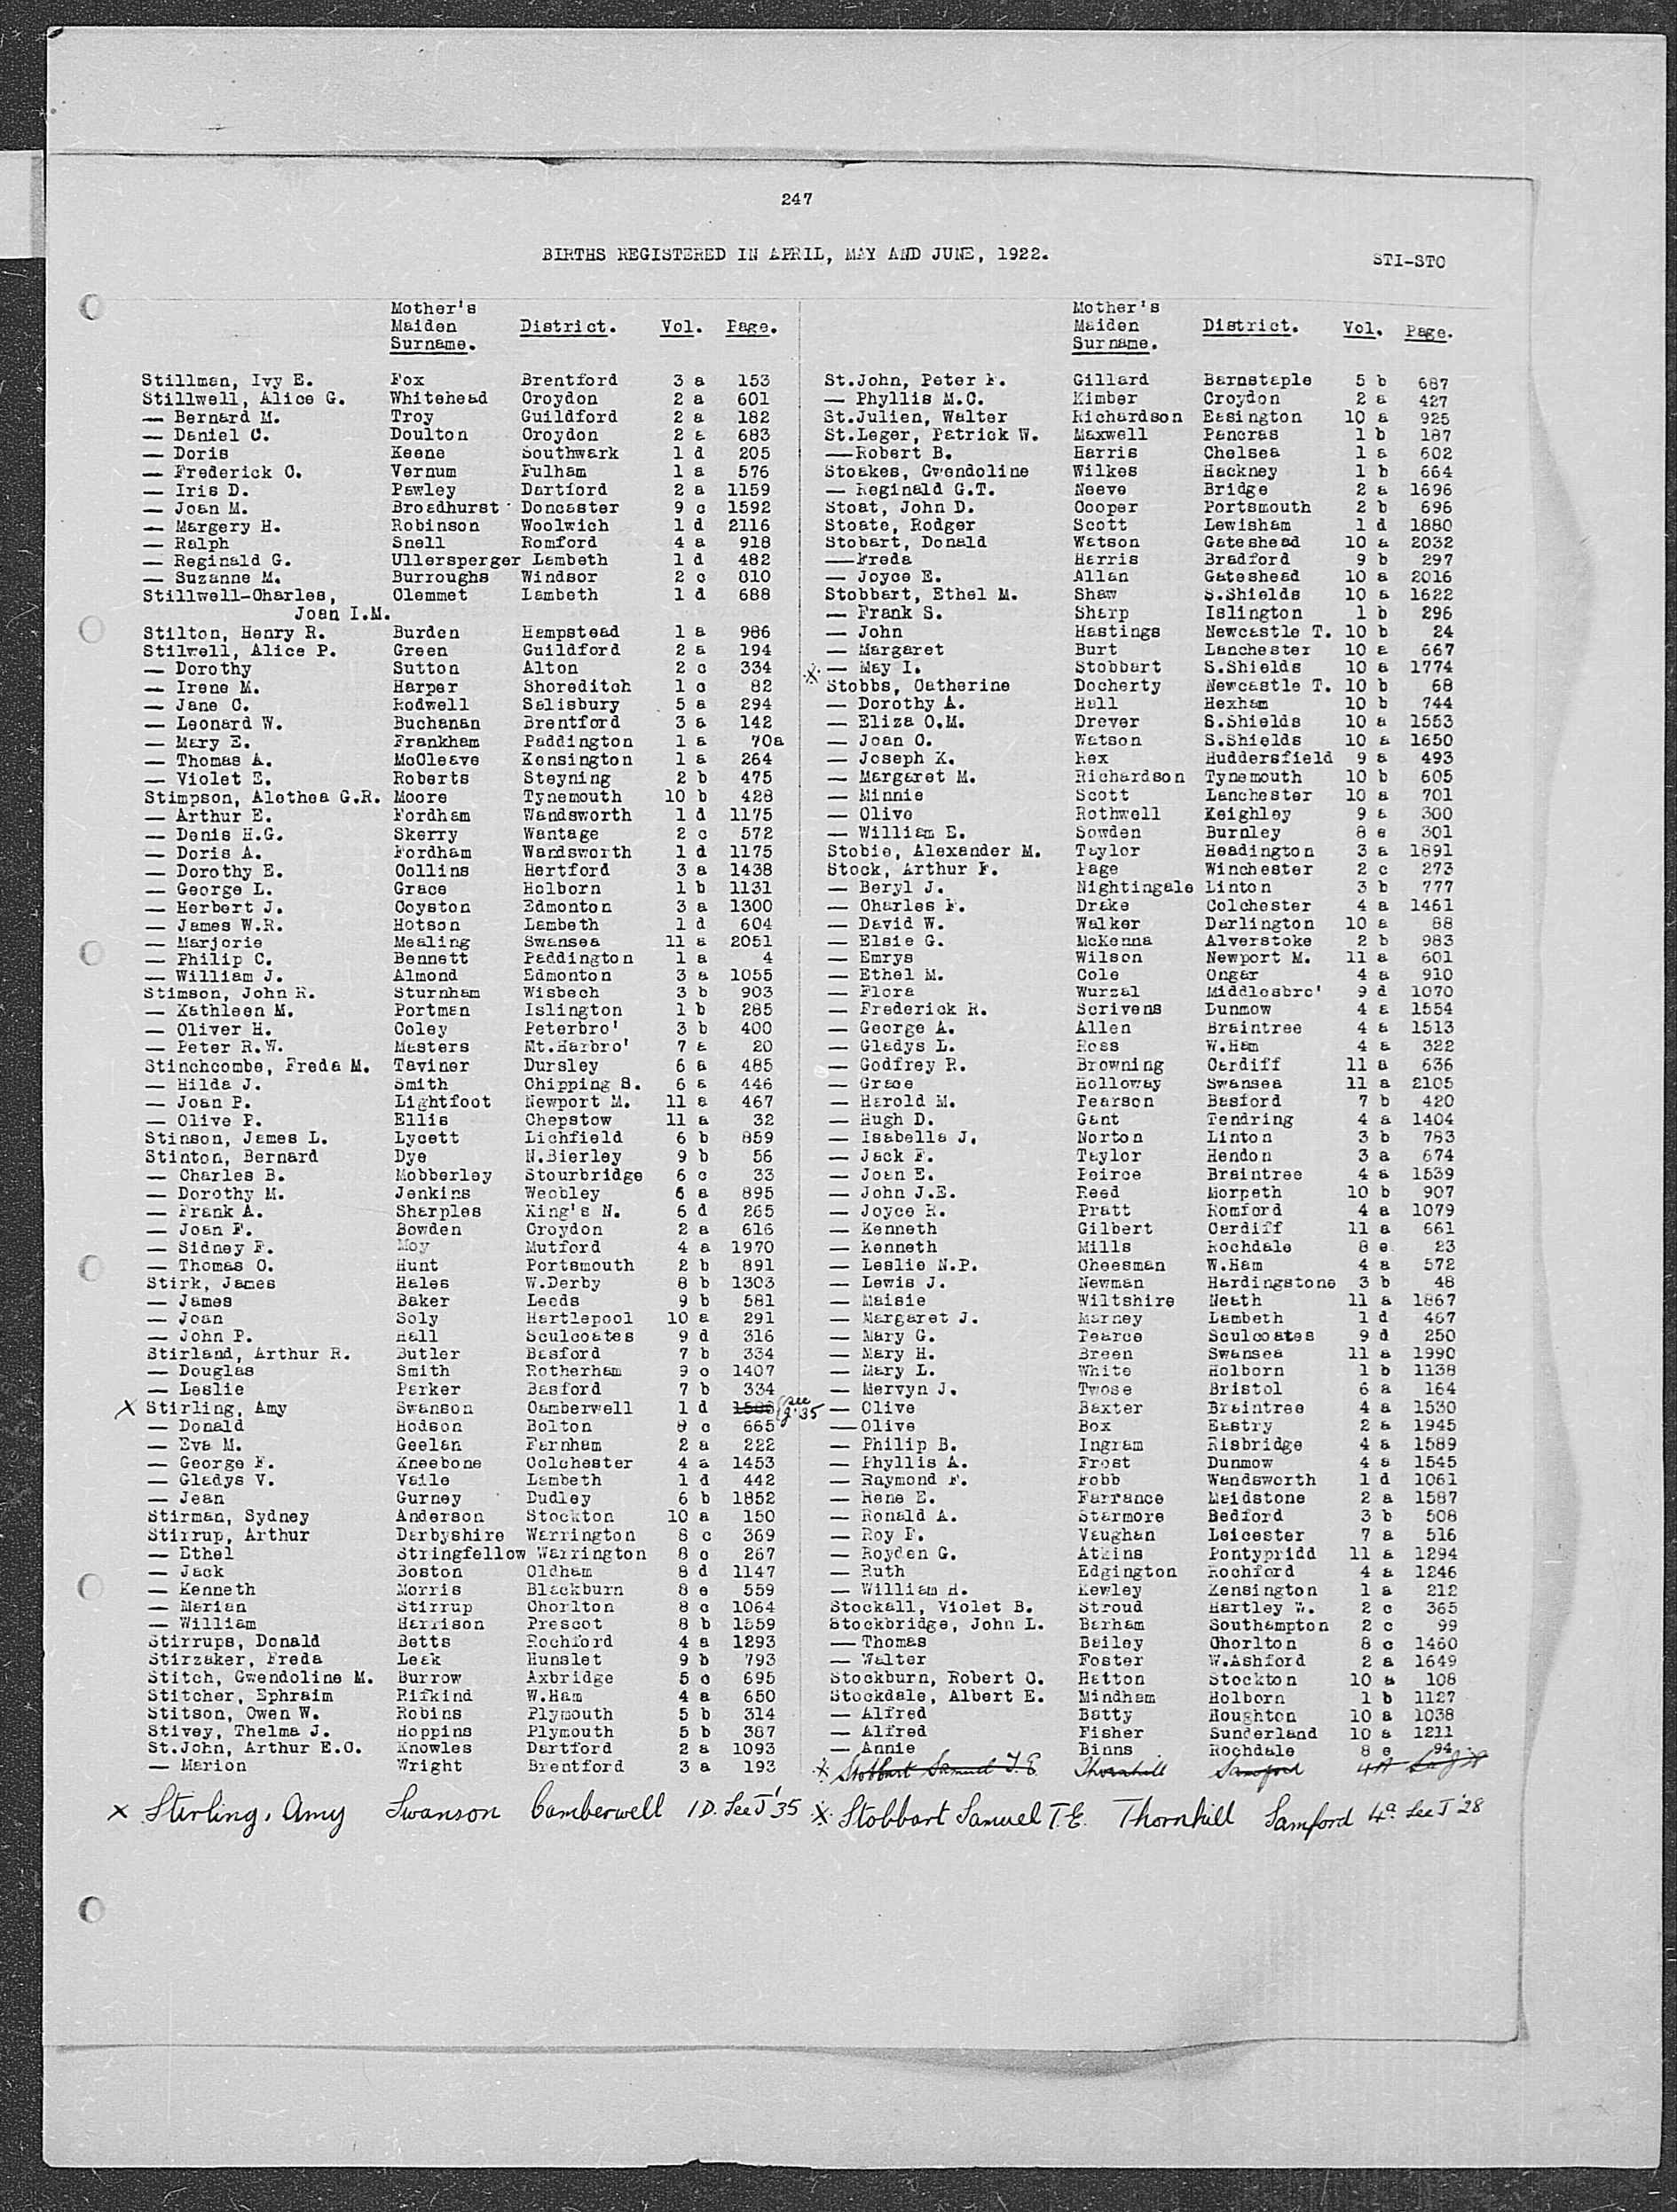 247
BIRTHS REGISTERED IN APRIL, MAY AND JUNE, 1922.
STI-STO
Mother's
Maiden
Surname. District. Vol. Page.
Stillman, Ivy E. Fox Brentford 3 a 153
Stillwell, Alice G. Whitehead Croydon 2 a 601
— Bernard M. Troy Guildford 2 a 182
— Daniel C. Doulton Croydon 2 a 683
— Doris Keene Southwark 1 d 205
— Frederick C. Vernum Fulham 1 a 576
— Iris D. Pawley Dartford 2 a 1159
— Joan M. Broadhurst Doncaster 9 c 1592
— Margery H. Robinson Woolwich 1 d 2116
— Ralph Snell Romford 4 a 918
— Reginald G. Ullersperger Lambeth 1 d 482
— Suzanne M. Burroughs Windsor 2 c 810
Stillwell-Charles, Clemmet Lambeth 1 d 688
Joan I.M.
Stilton, Henry R. Burden Hampstead 1 a 986
Stilwell, Alice P. Green Guildford 2 a 194
— Dorothy Sutton Alton 2 c 334
— Irene M. Harper Shoreditch 1 c 82
— Jane C. Rodwell Salisbury 5 a 294
— Leonard W. Buchanan Brentford 3 a 142
— Mary E. Frankham Paddington 1 a 70a
— Thomas A. McCleave Kensington 1 a 264
— Violet E. Roberts Steyning 2 b 475
Stimpson, Alethea G.R. Moore Tynemouth 10 b 428
— Arthur E. Fordham Wandsworth 1 d 1175
— Denis H.G. Skerry Wantage 2 c 572
— Doris A. Fordham Wandsworth 1 d 1175
— Dorothy E. Collins Hertford 3 a 1438
— George L. Grace Holborn 1 b 1131
— Herbert J. Coyston Edmonton 3 a 1300
— James W.R. Hotson Lambeth 1 d 604
— Marjorie Mealing Swansea 11 a 2051
— Philip C. Bennett Paddington 1 a 4
— William J. Almond Edmonton 3 a 1055
Stimson, John R. Sturnham Wisbech 3 b 903
— Kathleen M. Portman Islington 1 b 285
— Oliver H. Coley Peterbro' 3 b 400
— Peter R.W. Masters Mt.Harbro' 7 a 20
Stinchcombe, Freda M. Taviner Dursley 6 a 485
— Hilda J. Smith Chipping S. 6 a 446
— Joan P. Lightfoot Newport M. 11 a 467
— Olive P. Ellis Chepstow 11 a 32
Stinson, James L. Lycett Lichfield 6 b 859
Stinton, Bernard Dye N.Bierley 9 b 56
— Charles B. Mobberley Stourbridge 6 c 33
— Dorothy M. Jenkins Weobley 6 a 895
— Frank A. Sharples King's N. 6 d 265
— Joan F. Bowden Croydon 2 a 616
— Sidney F. Moy Mutford 4 a 1970
— Thomas O. Hunt Portsmouth 2 b 891
Stirk, James Hales W.Derby 8 b 1303
— James Baker Leeds 9 b 581
— Joan Soly Hartlepool 10 a 291
— John P. Hall Sculcoates 9 d 316
Stirland, Arthur R. Butler Basford 7 b 334
— Douglas Smith Rotherham 9 c 1407
— Leslie Parker Basford 7 b 334
X Stirling, Amy Swanson Camberwell 1 d see J.'35
— Donald Hodson Bolton 8 c 665
— Eva M. Geelan Farnham 2 a 222
— George F. Kneebone Colchester 4 a 1453
— Gladys V. Vaile Lambeth 1 d 442
— Jean Gurney Dudley 6 b 1852
Stirman, Sydney Anderson Stockton 10 a 150
Stirrup, Arthur Darbyshire Warrington 8 c 369
— Ethel Stringfellow Warrington 8 c 267
— Jack Boston Oldham 8 d 1147
— Kenneth Morris Blackburn 8 e 559
— Marian Stirrup Chorlton 8 c 1064
— William Harrison Prescot 8 b 1559
Stirrups, Donald Betts Rochford 4 a 1293
Stirzaker, Freda Leak Hunslet 9 b 793
Stitch, Gwendoline M. Burrow Axbridge 5 c 695
Stitcher, Ephraim Rifkind W.Ham 4 a 650
Stitson, Owen W. Robins Plymouth 5 b 314
Stivey, Thelma J. Hoppins Plymouth 5 b 387
St.John, Arthur E.C. Knowles Dartford 2 a 1093
— Marion Wright Brentford 3 a 193
X Stirling, Amy Swanson Camberwell 1D. See J'35
Mother's
Maiden
Surname. District. Vol. Page.
St.John, Peter F. Gillard Barnstaple 5 b 687
— Phyllis M.C. Kimber Croydon 2 a 427
St.Julien, Walter Richardson Easington 10 a 925
St.Leger, Patrick W. Maxwell Pancras 1 b 187
—Robert B. Harris Chelsea 1 a 602
Stoakes, Gwendoline Wilkes Hackney 1 b 664
— Reginald G.T. Neeve Bridge 2 a 1696
Stoat, John D. Cooper Portsmouth 2 b 696
Stoate, Rodger Scott Lewisham 1 d 1880
Stobart, Donald Watson Gateshead 10 a 2032
—Freda Harris Bradford 9 b 297
— Joyce E. Allan Gateshead 10 a 2016
Stobbart, Ethel M. Shaw S.Shields 10 a 1622
— Frank S. Sharp Islington 1 b 296
— John Hastings Newcastle T. 10 b 24
— Margaret Burt Lanchester 10 a 667
— May I. Stobbart S.Shields 10 a 1774
X Stobbs, Catherine Docherty Newcastle T. 10 b 68
— Dorothy A. Hall Hexham 10 b 744
— Eliza O.M. Drever S.Shields 10 a 1553
— Joan O. Watson S.Shields 10 a 1650
— Joseph K. Rex Huddersfield 9 a 493
— Margaret M. Richardson Tynemouth 10 b 605
— Minnie Scott Lanchester 10 a 701
— Olive Rothwell Keighley 9 a 300
— William E. Sowden Burnley 8 e 301
Stobie, Alexander M. Taylor Headington 3 a 1891
Stock, Arthur F. Page Winchester 2 c 273
— Beryl J. Nightingale Linton 3 b 777
— Charles F. Drake Colchester 4 a 1461
— David W. Walker Darlington 10 a 88
— Elsie G. McKenna Alverstoke 2 b 983
— Emrys Wilson Newport M. 11 a 601
— Ethel M. Cole Ongar 4 a 910
— Flora Wurzal Middlesbro' 9 d 1070
— Frederick R. Scrivens Dunmow 4 a 1554
— George A. Allen Braintree 4 a 1513
— Gladys L. Ross W.Ham 4 a 322
— Godfrey R. Browning Cardiff 11 a 636
— Grace Holloway Swansea 11 a 2105
— Harold M. Pearson Basford 7 b 420
— Hugh D. Gant Tendring 4 a 1404
— Isabella J. Norton Linton 3 b 783
— Jack F. Taylor Hendon 3 a 674
— Joan E. Peirce Braintree 4 a 1539
— John J.E. Reed Morpeth 10 b 907
— Joyce R. Pratt Romford 4 a 1079
— Kenneth Gilbert Cardiff 11 a 661
— Kenneth Mills Rochdale 8 e 23
— Leslie N.P. Cheesman W.Ham 4 a 572
— Lewis J. Newman Hardingstone 3 b 48
— Maisie Wiltshire Neath 11 a 1867
— Margaret J. Marney Lambeth 1 d 467
— Mary G. Pearce Sculcoates 9 d 250
— Mary H. Breen Swansea 11 a 1990
— Mary L. White Holborn 1 b 1138
— Mervyn J. Twose Bristol 6 a 164
— Olive Baxter Braintree 4 a 1530
—Olive Box Eastry 2 a 1945
— Philip B. Ingram Risbridge 4 a 1589
— Phyllis A. Frost Dunmow 4 a 1545
— Raymond F. Fobb Wandsworth 1 d 1061
— Rene E. Farrance Maidstone 2 a 1587
— Ronald A. Starmore Bedford 3 b 508
— Roy F. Vaughan Leicester 7 a 516
— Royden G. Atkins Pontypridd 11 a 1294
— Ruth Edgington Rochford 4 a 1246
— William H. Kewley Kensington 1 a 212
Stockall, Violet B. Stroud Hartley W. 2 c 365
Stockbridge, John L. Barham Southampton 2 c 99
— Thomas Bailey Chorlton 8 c 1460
— Walter Foster W.Ashford 2 a 1649
Stockburn, Robert O. Hatton Stockton 10 a 108
Stockdale, Albert E. Mindham Holborn 1 b 1127
— Alfred Batty Houghton 10 a 1038
— Alfred Fisher Sunderland 10 a 1211
— Annie Binns Rochdale 8 e 94
X Stobbart Samuel T.E. Thornhill Samford 4A
X Stobbart Samuel T.E. Thornhill Samford 4a. See J'28